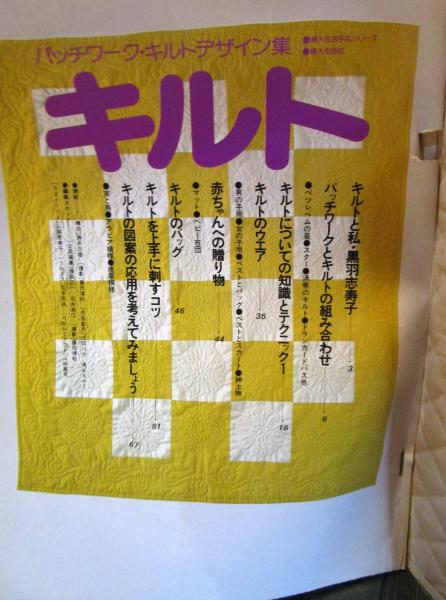 パッチワーク・キルトデザイン集
●婦人生活手芸シリーズ
●婦人生活社
キルト
キルトと私・黒羽志寿子
3
パッチワークとキルトの組み合わせ
6
●ベツレヘムの星●スター●流巻のキルト●ドランカードパス他
キルトについての知識とテクニックー
18
キルトのウエア
35
●男の子用●女の子用●ベストとバッグ●ベストとスカート●紳士物
赤ちゃんへの贈り物
44
●マット●ベビー布団
キルトのバッグ
46
キルトを上手に刺すコツ
51
キルトの図案の応用を考えてみましょう
67